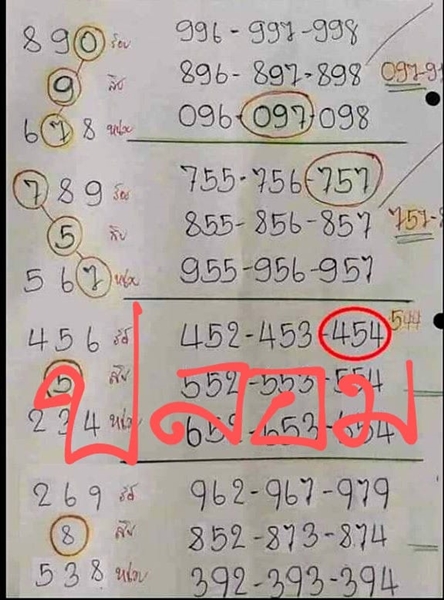 890 ร้อย 996-997-998
9 สิบ 896-897-898 097-9
678 หน่วย 096-097-098
789 ร้อย 755-756-757
5 สิบ 855-856-857 757-
567 หน่วย 955-956-957
456 ร้อย 452-453-454 544
5 สิบ 552-553-554
ปลอม
234 หน่วย 652-653-654
269 ร้อย 962-967-979
8 สิบ 852-873-874
538 หน่วย 392-393-394